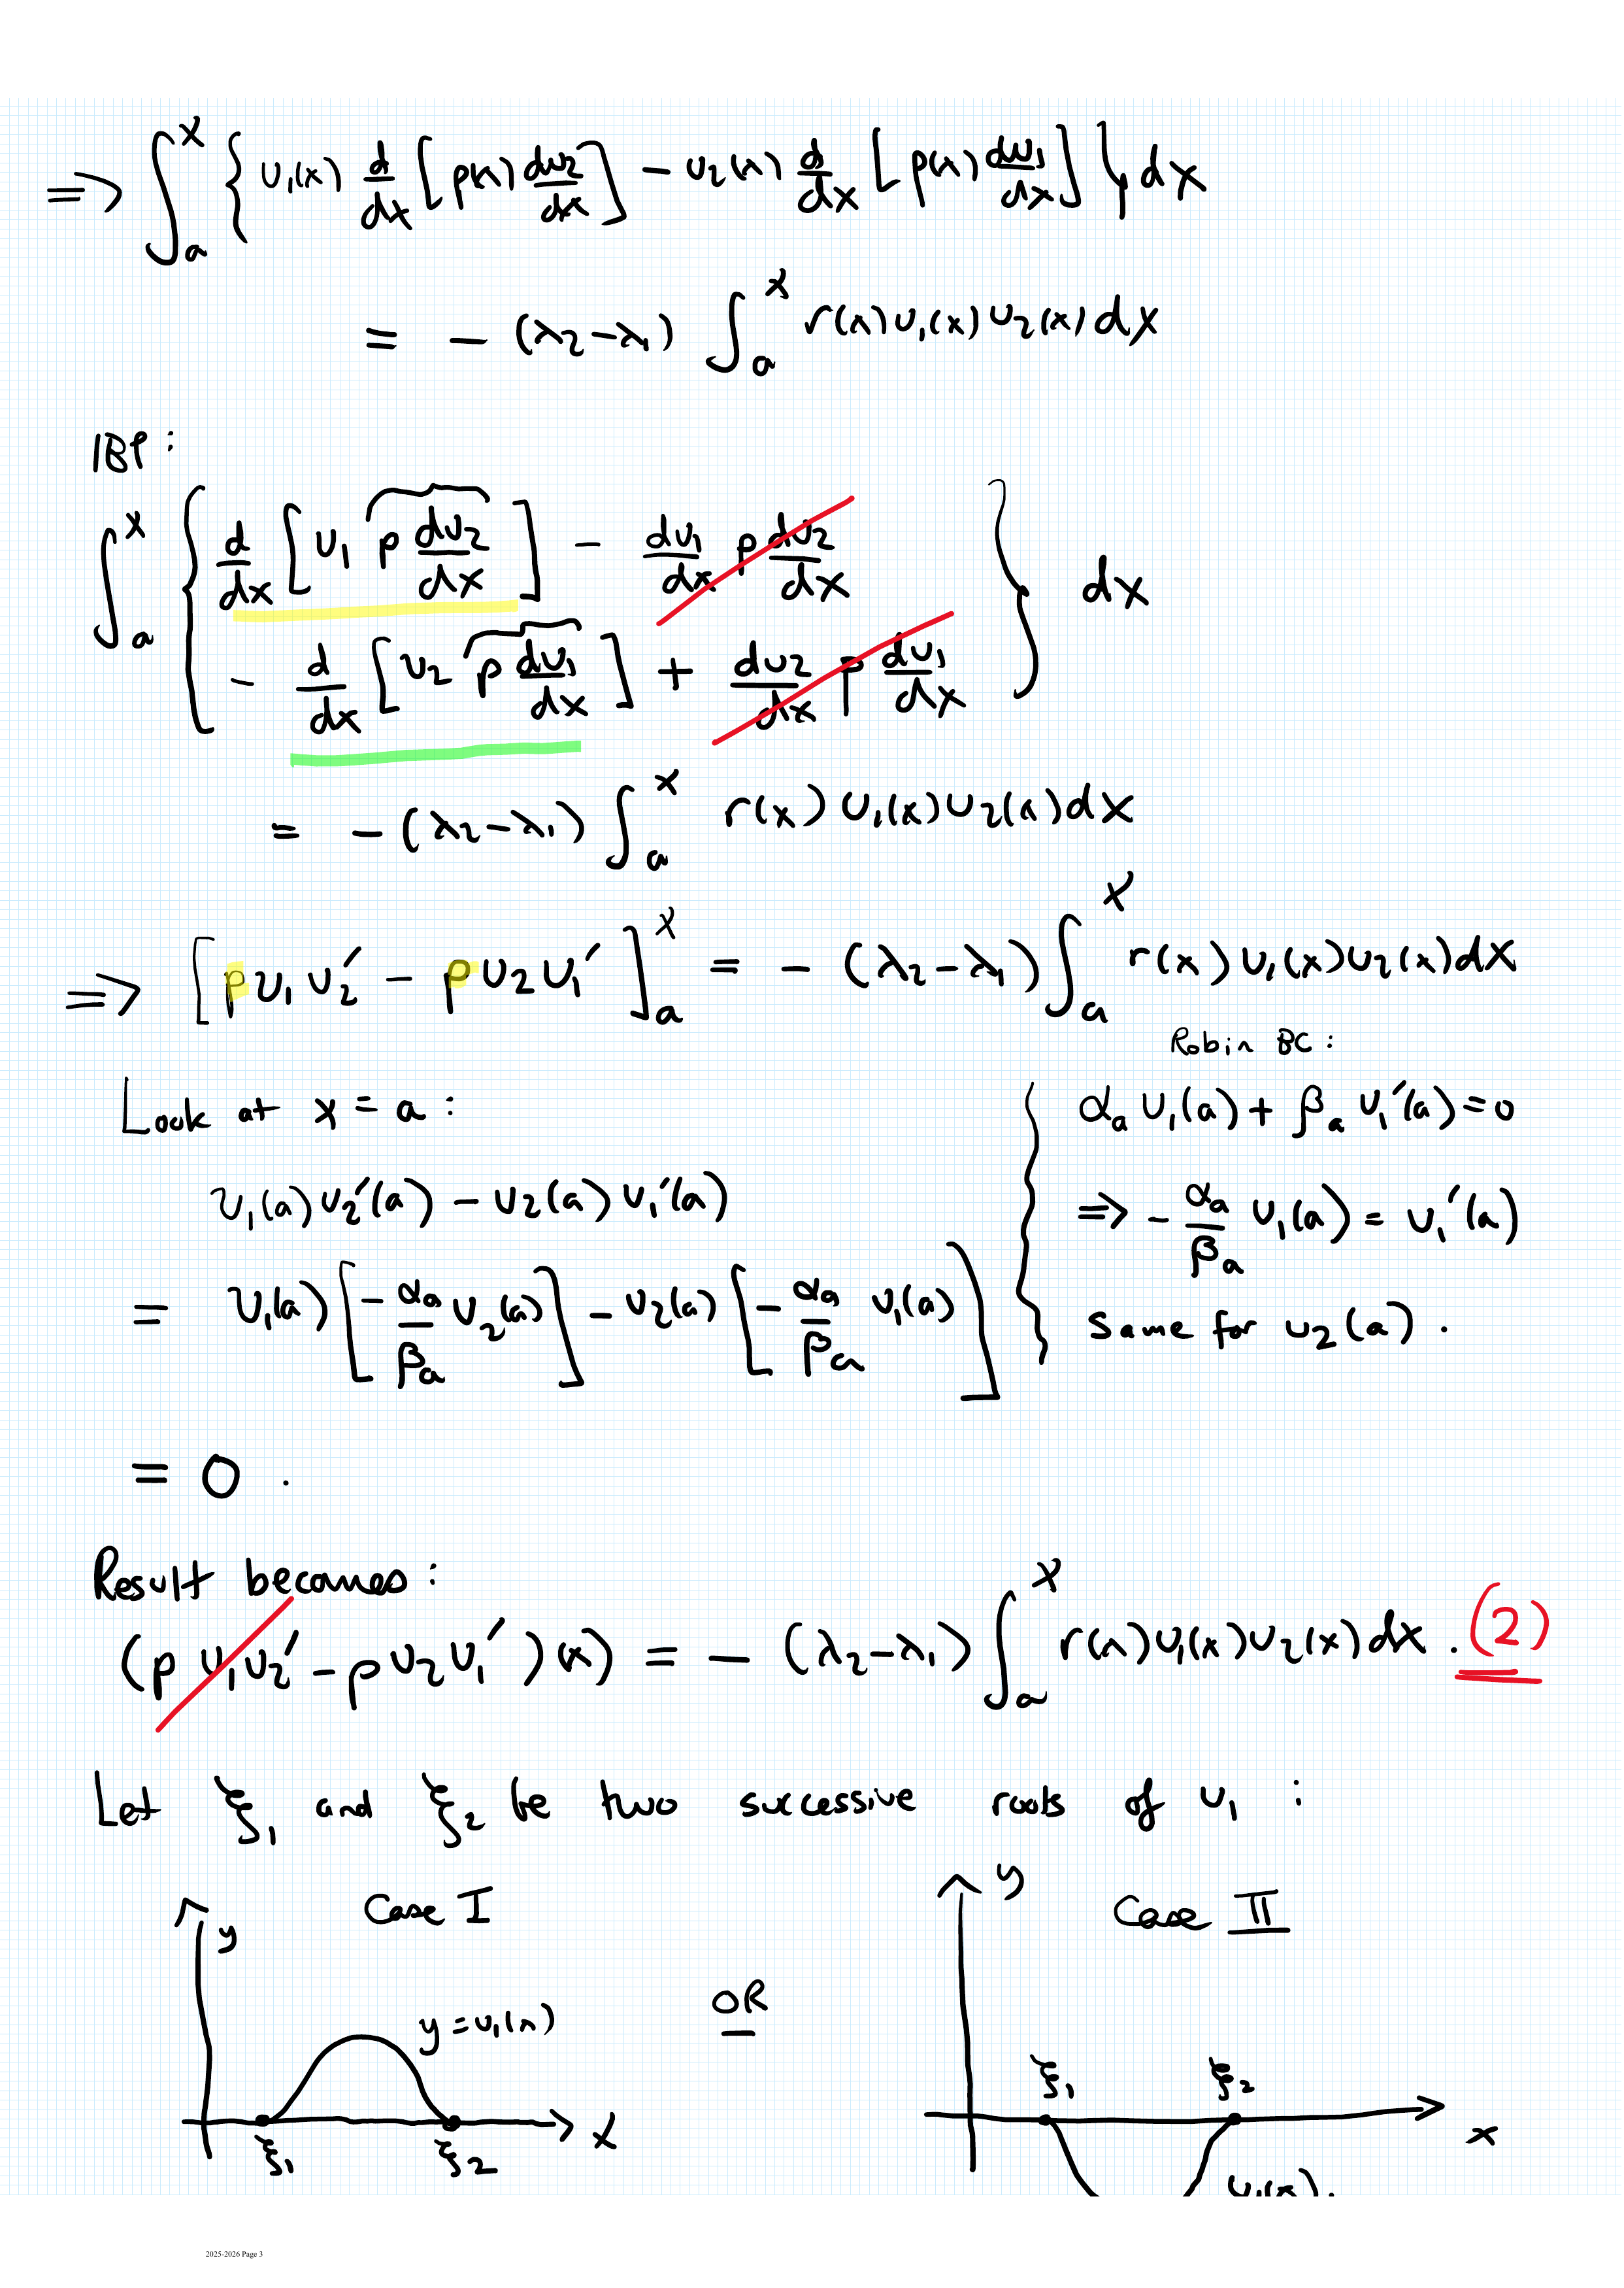 => ∫_a^x { u₁(x) d/dx [p(x) du₂/dx] − u₂(x) d/dx [p(x) du₁/dx] } dx
= − (λ₂−λ₁) ∫_a^x r(x) u₁(x) u₂(x) dx
IBP :
∫_a^x { d/dx [u₁ p du₂/dx] − du₁/dx p du₂/dx
− d/dx [u₂ p du₁/dx] + du₂/dx p du₁/dx } dx
= − (λ₂−λ₁) ∫_a^x r(x) u₁(x) u₂(x) dx
=> [p u₁ u₂′ − p u₂ u₁′]_a^x = − (λ₂−λ₁) ∫_a^x r(x) u₁(x) u₂(x) dx
Look at x = a :
u₁(a) u₂′(a) − u₂(a) u₁′(a)
= u₁(a) [− αₐ/βₐ u₂(a)] − u₂(a) [− αₐ/βₐ u₁(a)]
= 0 .
Robin BC :
αₐ u₁(a) + βₐ u₁′(a) = 0
=> − αₐ/βₐ u₁(a) = u₁′(a)
Same for u₂(a) .
Result becomes :
(p u₁u₂′ − p u₂ u₁′)(x) = − (λ₂−λ₁) ∫_a^x r(x) u₁(x) u₂(x) dx . (2)
Let ξ₁ and ξ₂ be two successive roots of u₁ :
Case I
y
y = u₁(x)
ξ₁ ξ₂ x
OR
Case II
y
ξ₁ ξ₂
x
u₁(x).
2025-2026 Page 3